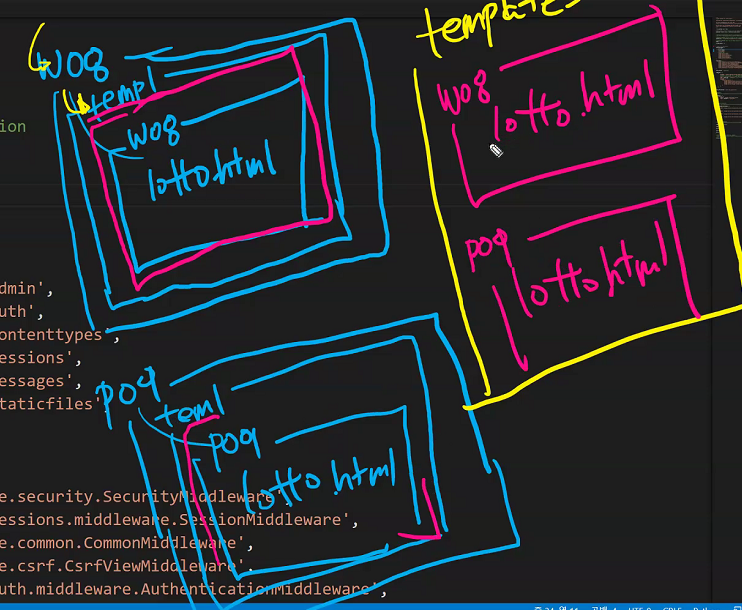 templates
w08
templ
w08
lotto.html
w08
lotto.html
pog
lotto.html
pog
teml
pog
lotto.html
ion
dmin',
uth',
ontenttypes',
essions',
essages',
taticfiles',
e.security.SecurityMiddleware',
essions.middleware.SessionMiddleware',
e.common.CommonMiddleware',
e.csrf.CsrfViewMiddleware',
uth.middleware.AuthenticationMiddleware',